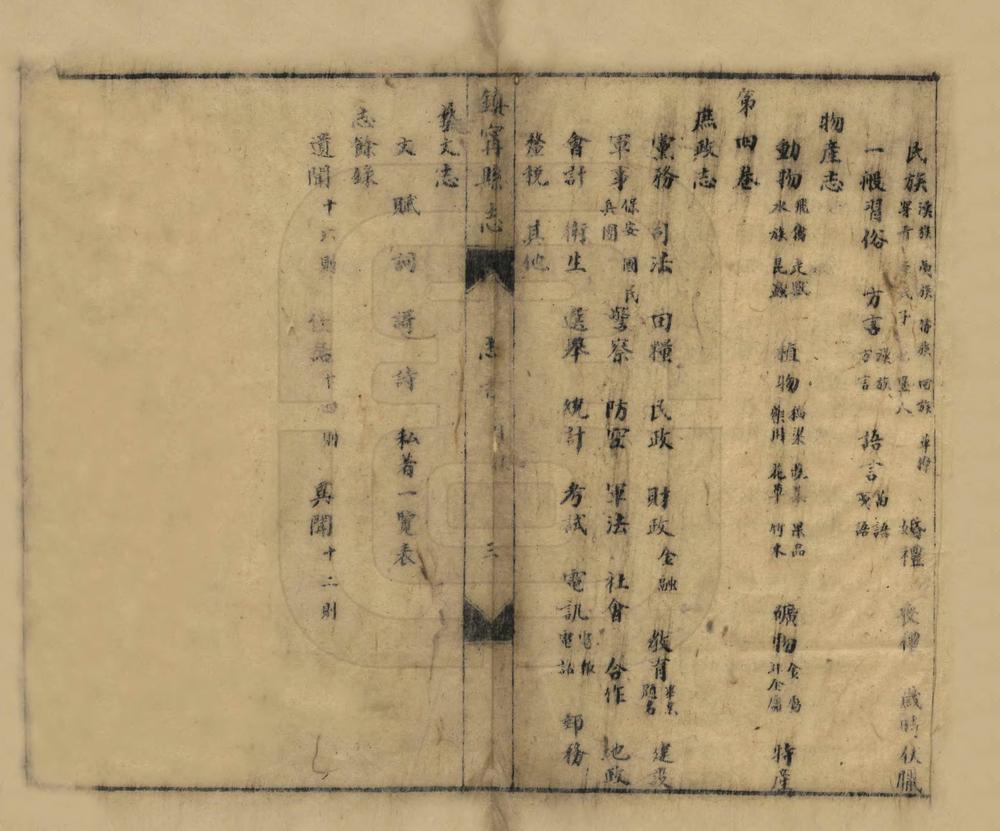 民族 漢族 苗族 回族 婚禮 喪禮 歲時伏臘
一般習俗 方言 漢族方言 語言 苗語 夷語
物產志
動物 飛禽 走獸 水族 昆蟲 植物 稻粱 蔬菜 果品 藥用 花草 竹木 礦物 金屬 非金屬 特產
第四卷
庶政志
黨務 司法 田糧 民政 財政 金融 教育 畢業題名 建設
軍事 保安 國民兵團 警察 防空 軍法 社會 合作 地政
會計 衛生 選舉 統計 考試 電訊 電報 電話 郵務
營稅 其他
鎮寧縣志 三
藝文志
文 賦 詞 謌 詩 私著一覽表
志餘錄
遺聞 十六則 十四則 異聞 十二則